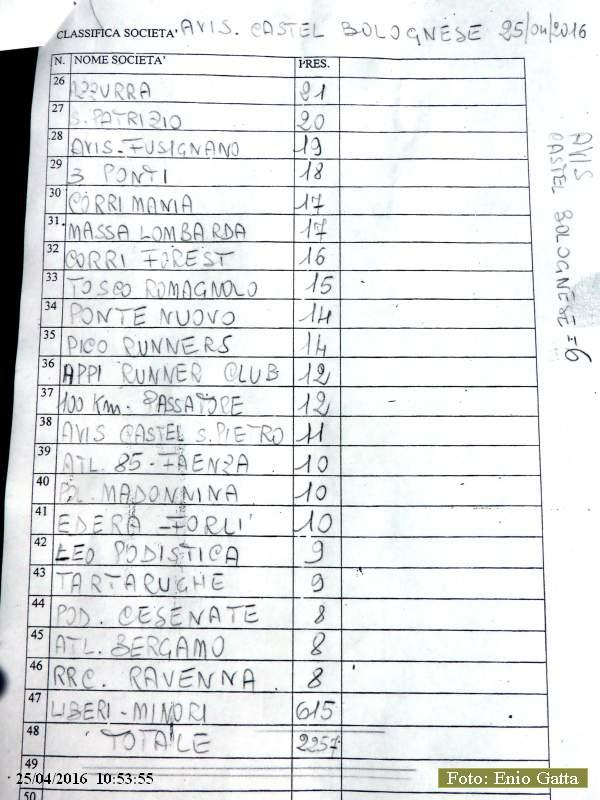 CLASSIFICA SOCIETA' AVIS. CASTEL BOLOGNESE 25/04/2016
N. NOME SOCIETA' PRES.
26 AZZURRA 21
27 S. PATRIZIO 20
28 AVIS-FUSIGNANO 19
29 3 PONTI 18
30 CORRI MANIA 17
31. MASSA LOMBARDA 17
32 CORRI FOREST 16
33 TOSCO ROMAGNOLO 15
34 PONTE NUOVO 14
35 PICO RUNNERS 14
36 APPI RUNNER CLUB 12
37 100 Km. PASSATORE 12
38 AVIS CASTEL S. PIETRO 11
39 ATL. 85-FAENZA 10
40 POL. MADONNINA 10
41 EDERA -FORLI' 10
42 LEO PODISTICA 9
43 TARTARUGHE 9
44 POD. CESENATE 8
45 ATL. BERGAMO 8
46 RRC. RAVENNA 8
47 LIBERI-MINORI 615
48 TOTALE 2257
49
50
AVIS
CASTEL BOLOGNESE = 6
25/04/2016 10:53:55
Foto: Enio Gatta